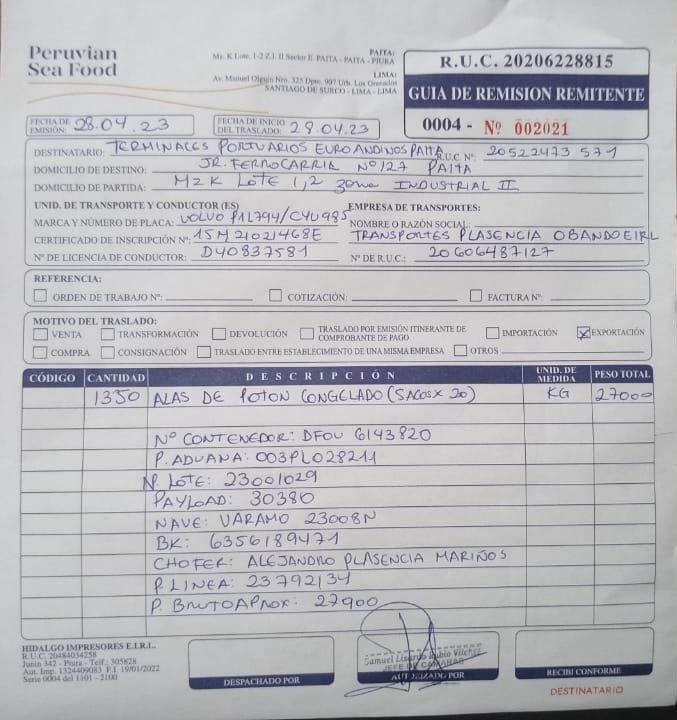 Peruvian
Sea Food
PAITA:
Mz. K Lote. 1-2 Z.I. II Sector E PAITA - PAITA - PIURA
LIMA:
Av. Manuel Olguin Nro. 325 Dpto. 907 Urb. Los Granados
SANTIAGO DE SURCO - LIMA - LIMA
R.U.C. 20206228815
GUIA DE REMISION REMITENTE
0004 - Nº 002021
FECHA DE EMISIÓN: 28.04.23
FECHA DE INICIO DEL TRASLADO: 29.04.23
DESTINATARIO: TERMINALES PORTUARIOS EUROANDINOS PAITA R.U.C Nº: 20522473571
DOMICILIO DE DESTINO: JR. FERROCARRIL Nº 127 PAITA
DOMICILIO DE PARTIDA: MZ K LOTE 1,2 zona INDUSTRIAL II
UNID. DE TRANSPORTE Y CONDUCTOR (ES) EMPRESA DE TRANSPORTES:
MARCA Y NÚMERO DE PLACA: VOLVO P1L794/C4U985 NOMBRE O RAZÓN SOCIAL:
CERTIFICADO DE INSCRIPCIÓN Nº: 15M21021468E TRANSPORTES PLASENCIA OBANDO EIRL
Nº DE LICENCIA DE CONDUCTOR: D40837581 Nº DE R.U.C.: 20606487127
REFERENCIA:
ORDEN DE TRABAJO Nº: COTIZACIÓN: FACTURA Nº:
MOTIVO DEL TRASLADO:
VENTA TRANSFORMACIÓN DEVOLUCIÓN TRASLADO POR EMISIÓN ITINERANTE DE COMPROBANTE DE PAGO IMPORTACIÓN EXPORTACIÓN
COMPRA CONSIGNACIÓN TRASLADO ENTRE ESTABLECIMIENTO DE UNA MISMA EMPRESA OTROS
CÓDIGO CANTIDAD DESCRIPCIÓN UNID. DE MEDIDA PESO TOTAL
1350 ALAS DE POTON CONGELADO (SACOS X 20) KG 27000
Nº CONTENEDOR: DFOU 6143820
P. ADUANA: 003PL028211
N. LOTE: 23001029
PAYLOAD: 30380
NAVE: VARAMO 23008N
BK: 6356189471
CHOFER: ALEJANDRO PLASENCIA MARIÑOS
P. LINEA: 23792134
P. BRUTO APROX: 27900
HIDALGO IMPRESORES E.I.R.L.
R.U.C. 20484034258
Junin 342 - Piura - Telf.: 305828
Aut. Imp. 1324409083 F.I. 19/01/2022
Serie 0004 del 1101 - 2100
DESPACHADO POR
Samuel Lisardo Rubio Vilchez
JEFE DE CAMARAS
AUTORIZADO POR
RECIBI CONFORME
DESTINATARIO